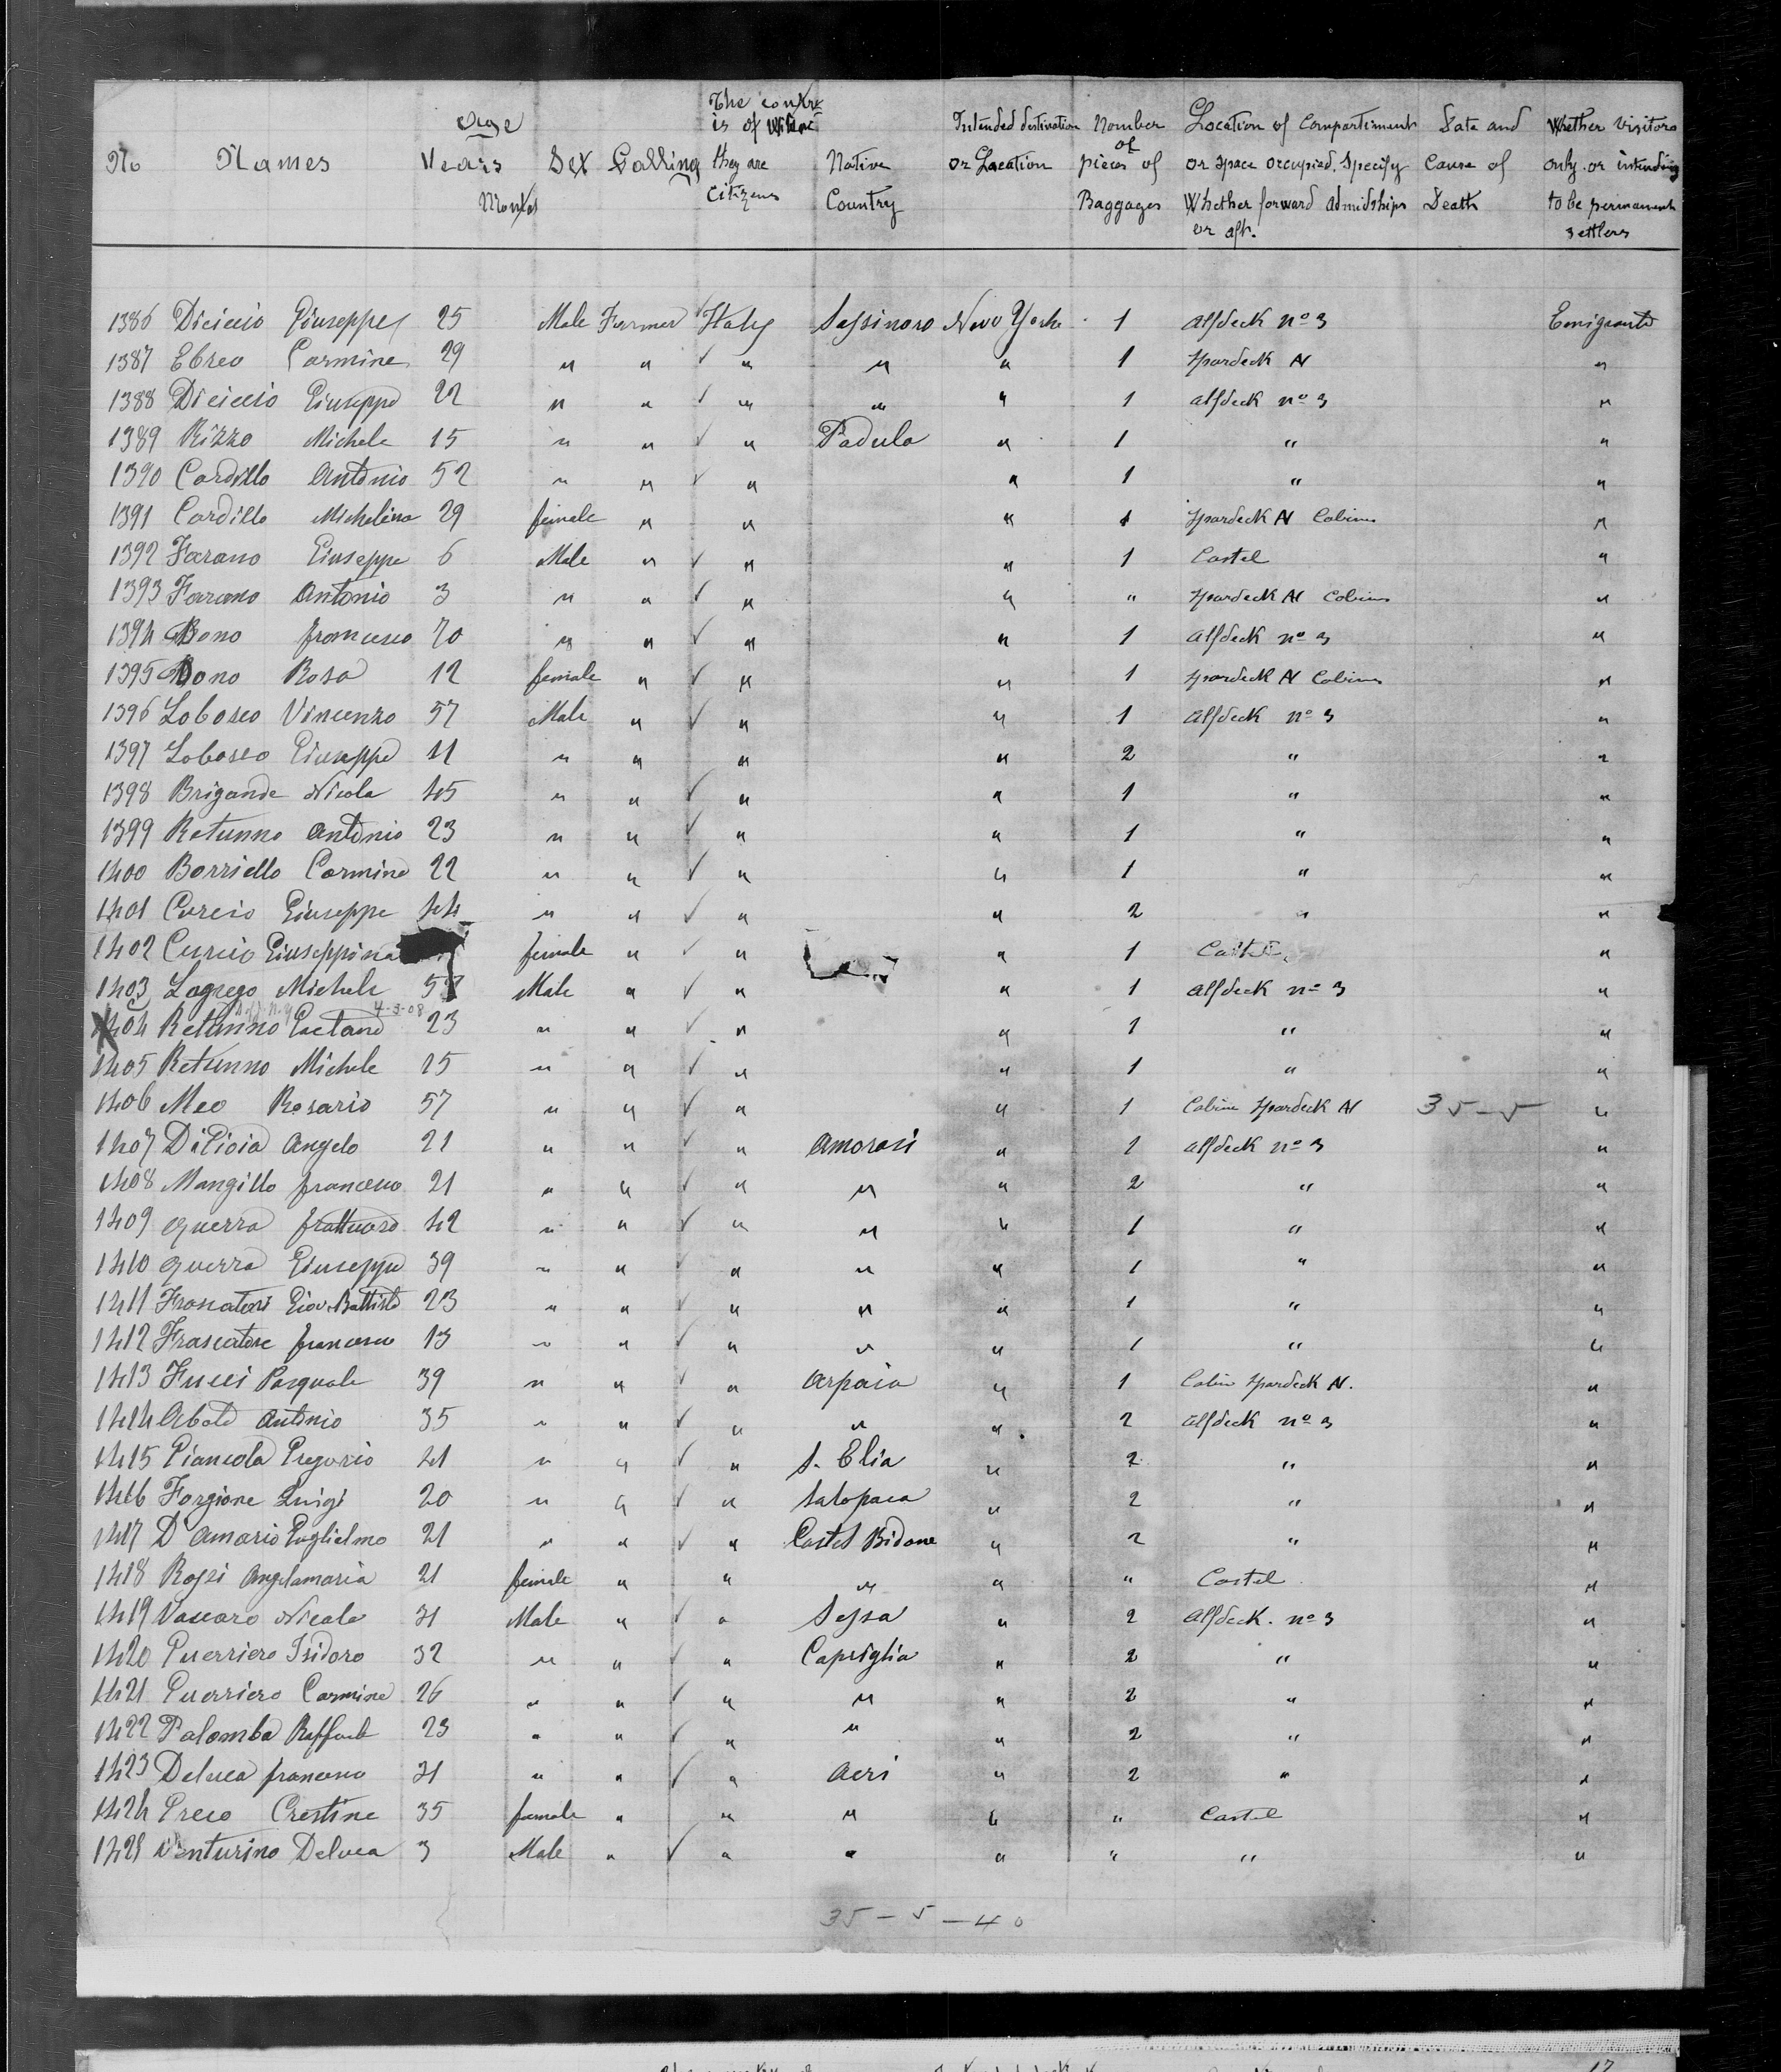 No Names Age Years Months Sex Calling The contr is of which they are Citizens Native Country Intended destination or Location Number of pieces of Baggages Location of Compartiment or space occupied. Specify Whether forward admidships or aft. Date and Cause of Death Whether Visitors only or intending to be permanent settlers
1386 Diciccio Giuseppe 25 Male Farmer ✓ Italy Sassinoro New Yorke 1 Aftdeck nº 3 Emigrants
1387 Ebreo Carmine 29 " " ✓ " " " 1 Spardeck N "
1388 Diciccio Giuseppe 22 " " ✓ " " " 1 aftdeck nº 3 "
1389 Rizzo Michele 15 " " ✓ " Padula " 1 " "
1390 Cardillo Antonio 52 " " ✓ " " 1 " "
1391 Cardillo Michelina 29 female " " " 1 Spardeck N Cabins "
1392 Farano Giuseppe 6 Male " ✓ " " 1 Castel "
1393 Farano Antonio 3 " " ✓ " " " Spardeck N Cabins "
1394 Bono francesco 70 " " ✓ " " 1 Aftdeck nº 3 "
1395 Bono Rosa 12 female " ✓ " " 1 spardeck N Cabins "
1396 Lobosco Vincenzo 57 Male " ✓ " " 1 Aftdeck nº 3 "
1397 Lobosco Giuseppe 11 " " " " 2 " "
1398 Brigande Nicola 45 " " ✓ " " 1 " "
1399 Retunno Antonio 23 " " ✓ " " 1 " "
1400 Borriello Carmine 22 " " ✓ " " 1 " "
1401 Curcio Giuseppe 44 " " ✓ " " 2 " "
1402 Curcio Giuseppina female " ✓ " " 1 Castel "
1403 Lagrego Michele Male " ✓ " " 1 Aftdeck nº 3 "
4-3-08
1404 Retunno Gaetano 23 " " ✓ " " 1 " "
1405 Retunno Michele 25 " " ✓ " " 1 " "
1406 Meo Rosario 57 " " ✓ " " 1 Cabine Spardeck N 35-5 "
1407 DiGioia Angelo 21 " " ✓ " Amorosi " 1 aftdeck nº 3 "
1408 Mangillo francesco 21 " " ✓ " " " 2 " "
1409 Guerra 42 " " ✓ " " " 1 " "
1410 Guerra Giuseppe 39 " " ✓ " " " 1 " "
1411 Giov. Battista 23 " " ✓ " " " 1 " "
1412 Frascatore francesco 13 " " ✓ " " " 1 " "
1413 Fucci Pasquale 39 " " ✓ " Arpaia " 1 Cabin Spardeck N. "
1414 Abate Antonio 35 " " ✓ " " " 2 Aftdeck nº 3 "
1415 Piancola Gregorio 21 " " ✓ " S. Elia " 2 " "
1416 Forgione Luigi 20 " " ✓ " Salopaca " 2 " "
1417 D'Amario Guglielmo 21 " " ✓ " Castel Bidone " 2 " "
1418 Rossi Angelamaria 21 female " " " " " Castel "
1419 Vaccaro Nicola 31 Male " ✓ " Sessa " 2 Aftdeck. nº 3 "
1420 Guerriero Isidoro 32 " " ✓ " Capriglia " 2 " "
1421 Guerriero Carmine 26 " " ✓ " " " 2 " "
1422 Palomba 23 " " ✓ " " " 2 " "
1423 Deluca francesco 31 " " ✓ " Acri " 2 " "
1424 Greco Crestine 35 female " " " " " Castel "
1425 Venturino Deluca 3 Male " ✓ " " " " " "
35 - 5 - 40